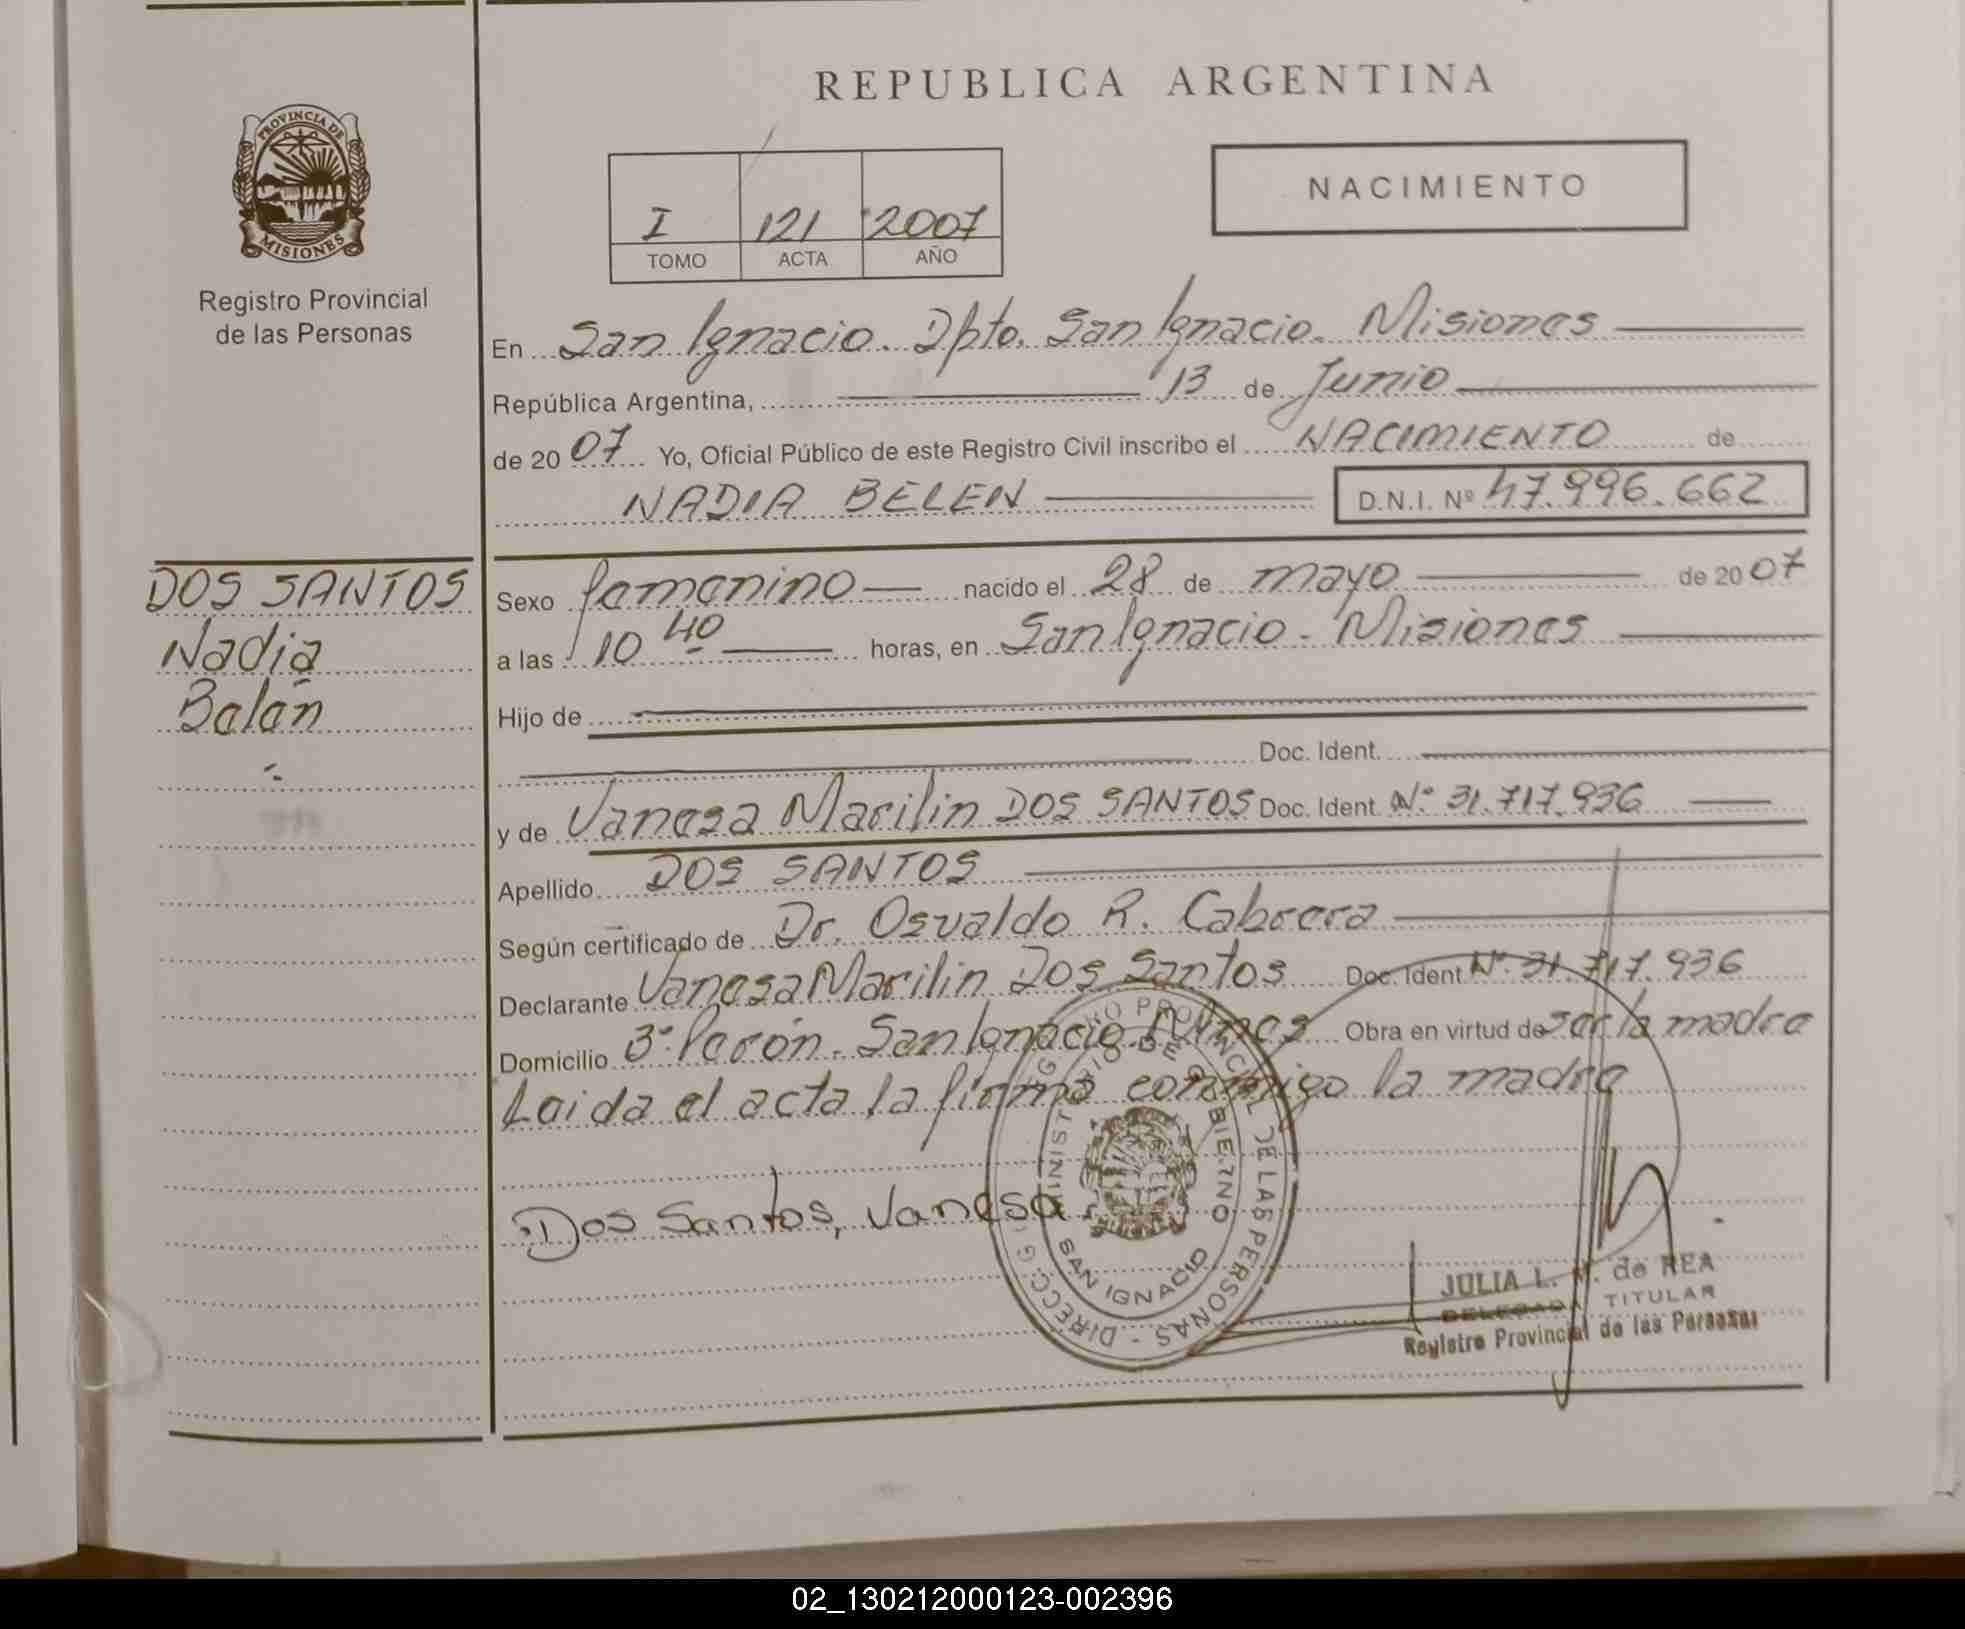 REPUBLICA ARGENTINA
PROVINCIA DE
MISIONES
Registro Provincial
de las Personas
I 121 2007
TOMO ACTA AÑO
NACIMIENTO
En San Ignacio. Dpto. San Ignacio. Misiones
República Argentina, 13 de Junio
de 2007 Yo, Oficial Público de este Registro Civil inscribo el NACIMIENTO de
NADIA BELEN D.N.I. Nº 47.996.662
DOS SANTOS
Nadia
Belén
Sexo femenino nacido el 28 de mayo de 2007
a las 10 40 horas, en San Ignacio - Misiones
Hijo de
Doc. Ident.
y de Vanesa Marilin DOS SANTOS Doc. Ident. Nº 31.717.936
Apellido DOS SANTOS
Según certificado de Dr. Osvaldo R. Cabrera
Declarante Vanesa Marilin Dos Santos Doc. Ident Nº 31.717.936
Domicilio 3º Perón. San Ignacio. Mnes Obra en virtud de ser la madre
Leida el acta la firma conmigo la madre
Dos Santos, Vanesa
DIRECC. G. REGISTRO PROVINCIAL DE LAS PERSONAS -
MINISTERIO DE GOBIERNO
SAN IGNACIO
JULIA L. de REA
DELEGADA TITULAR
Registro Provincial de las Personas
02_130212000123-002396